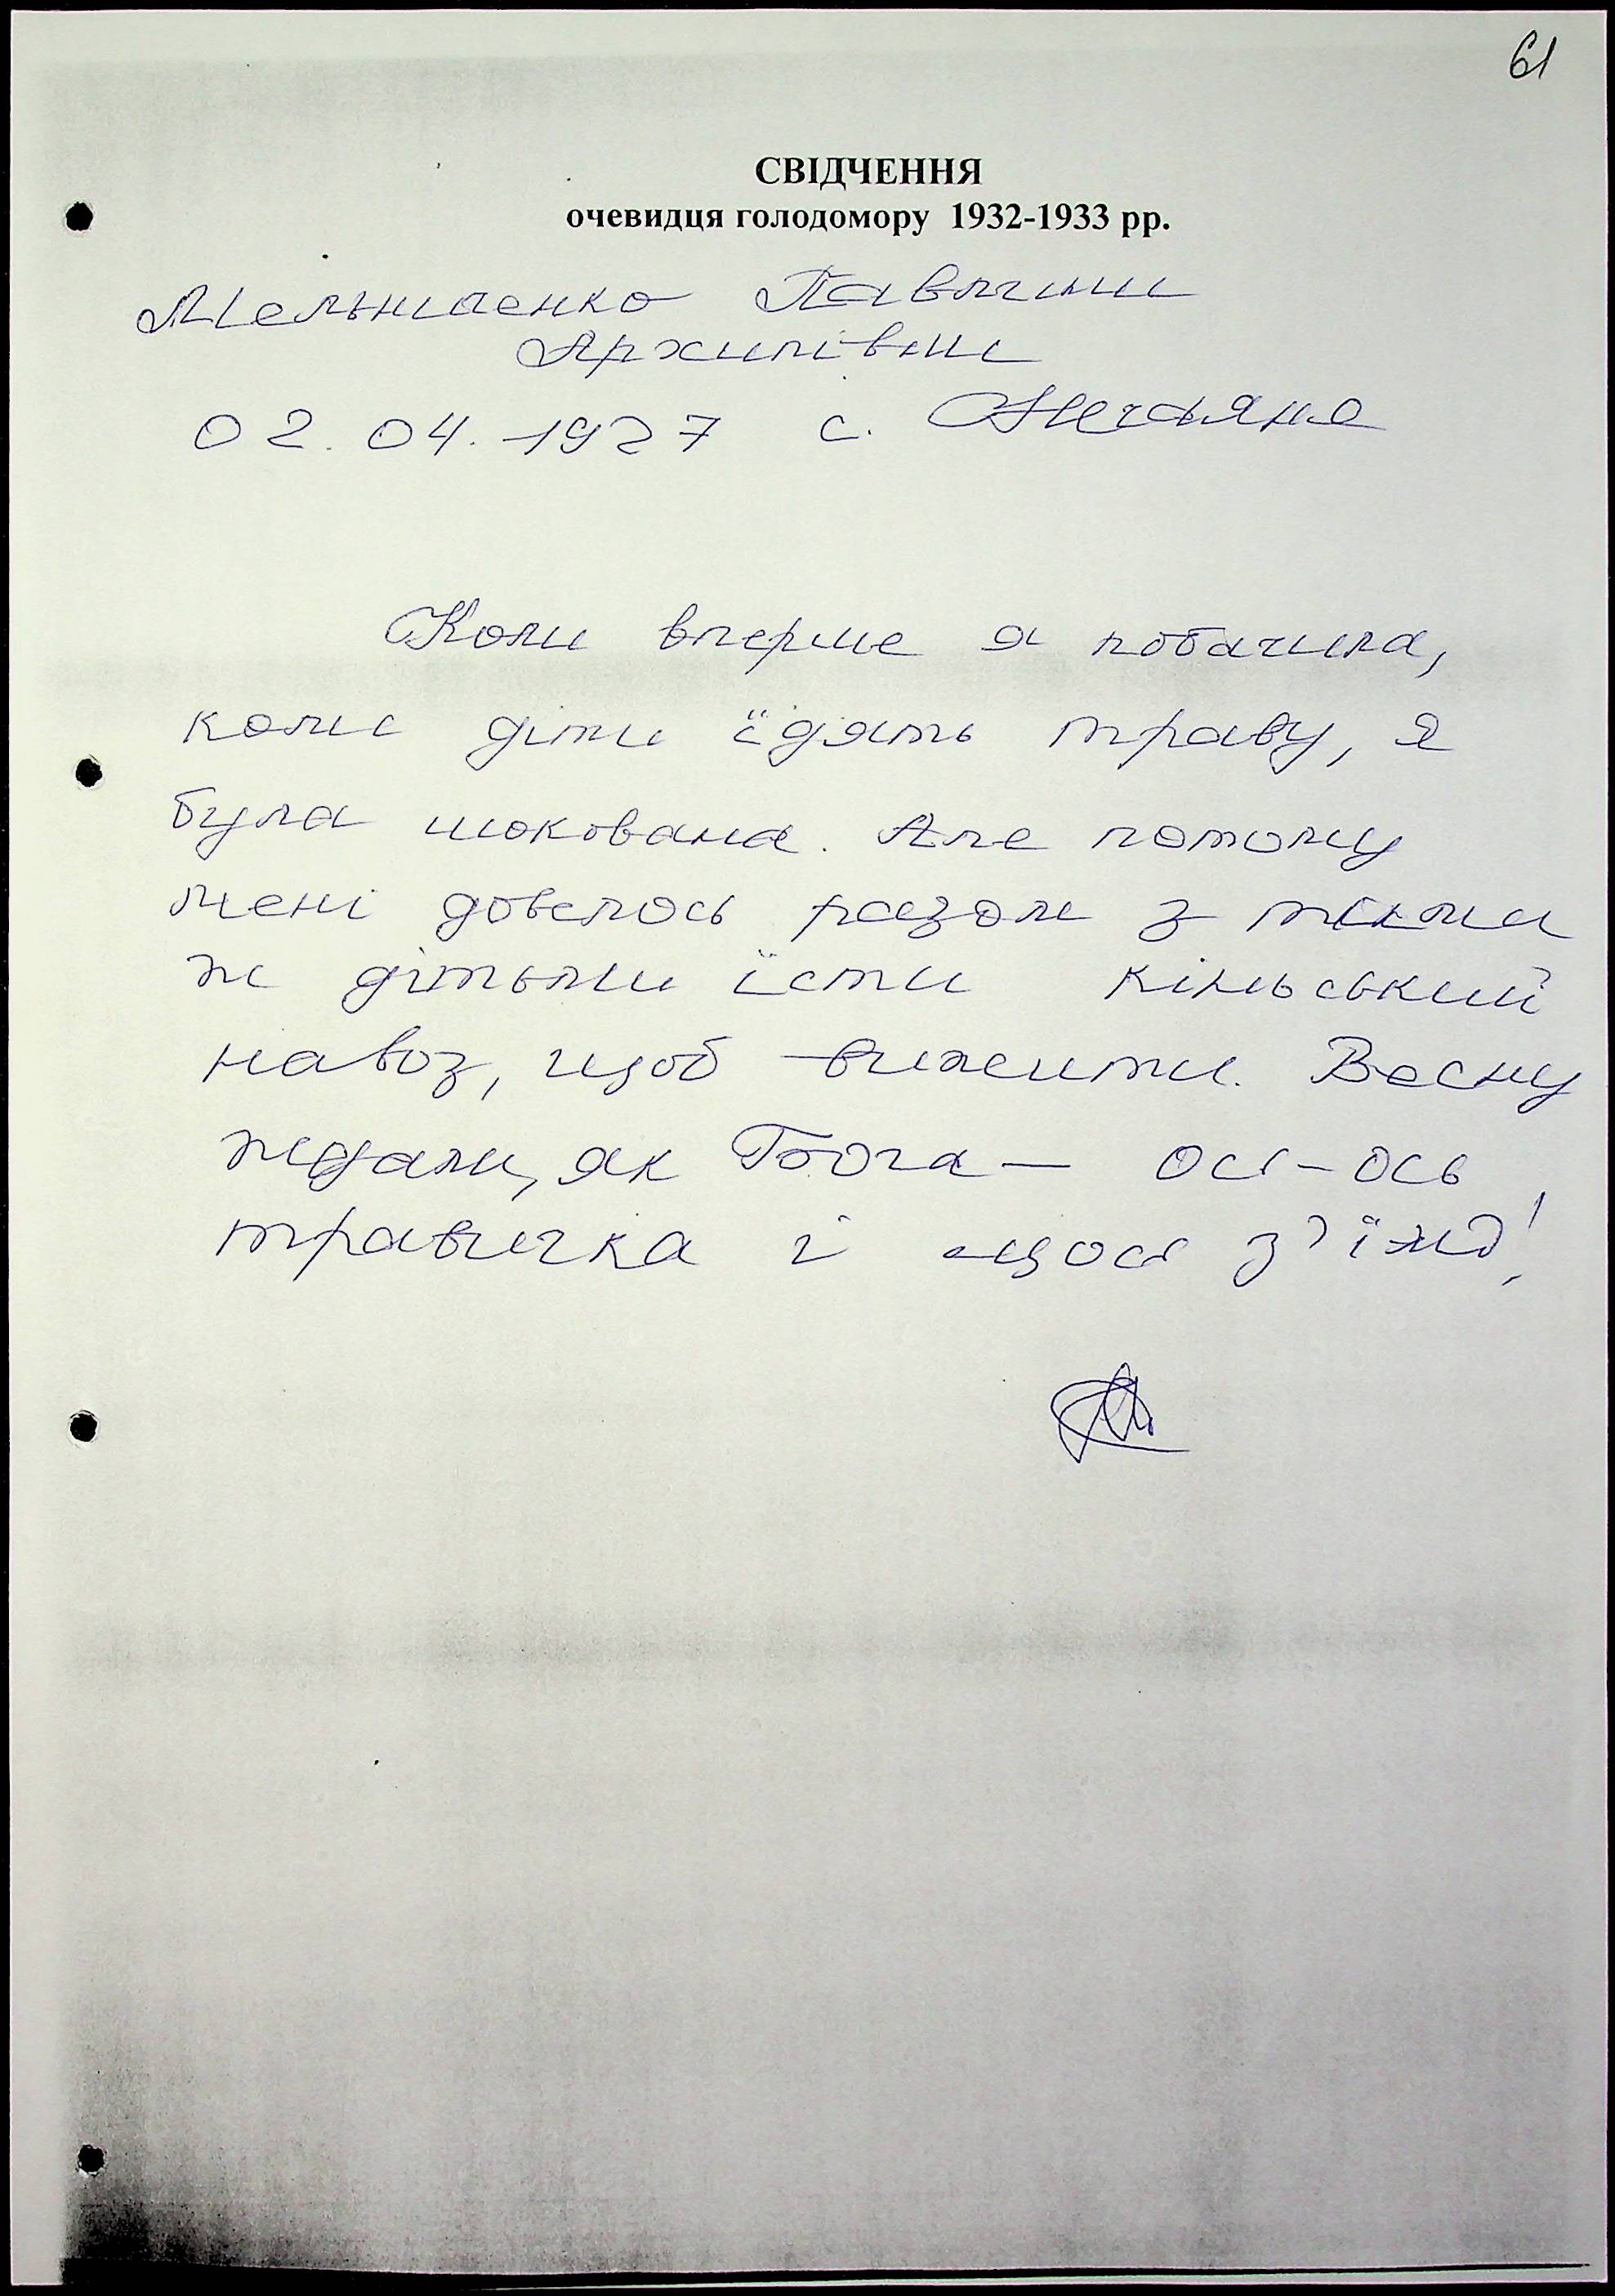 61
СВІДЧЕННЯ
очевидця голодомору 1932-1933 рр.
Мельниченко Павлини
Архипівни
02.04.1927 с. Нечаяне
Коли вперше я побачила,
коли діти їдять траву, я
була шокована. Але потому
мені довелось разом з тими
ж дітьми їсти кінський
навоз, щоб вижити. Весну
ждали, як Бога — ось-ось
травичка і щось з'їмо!